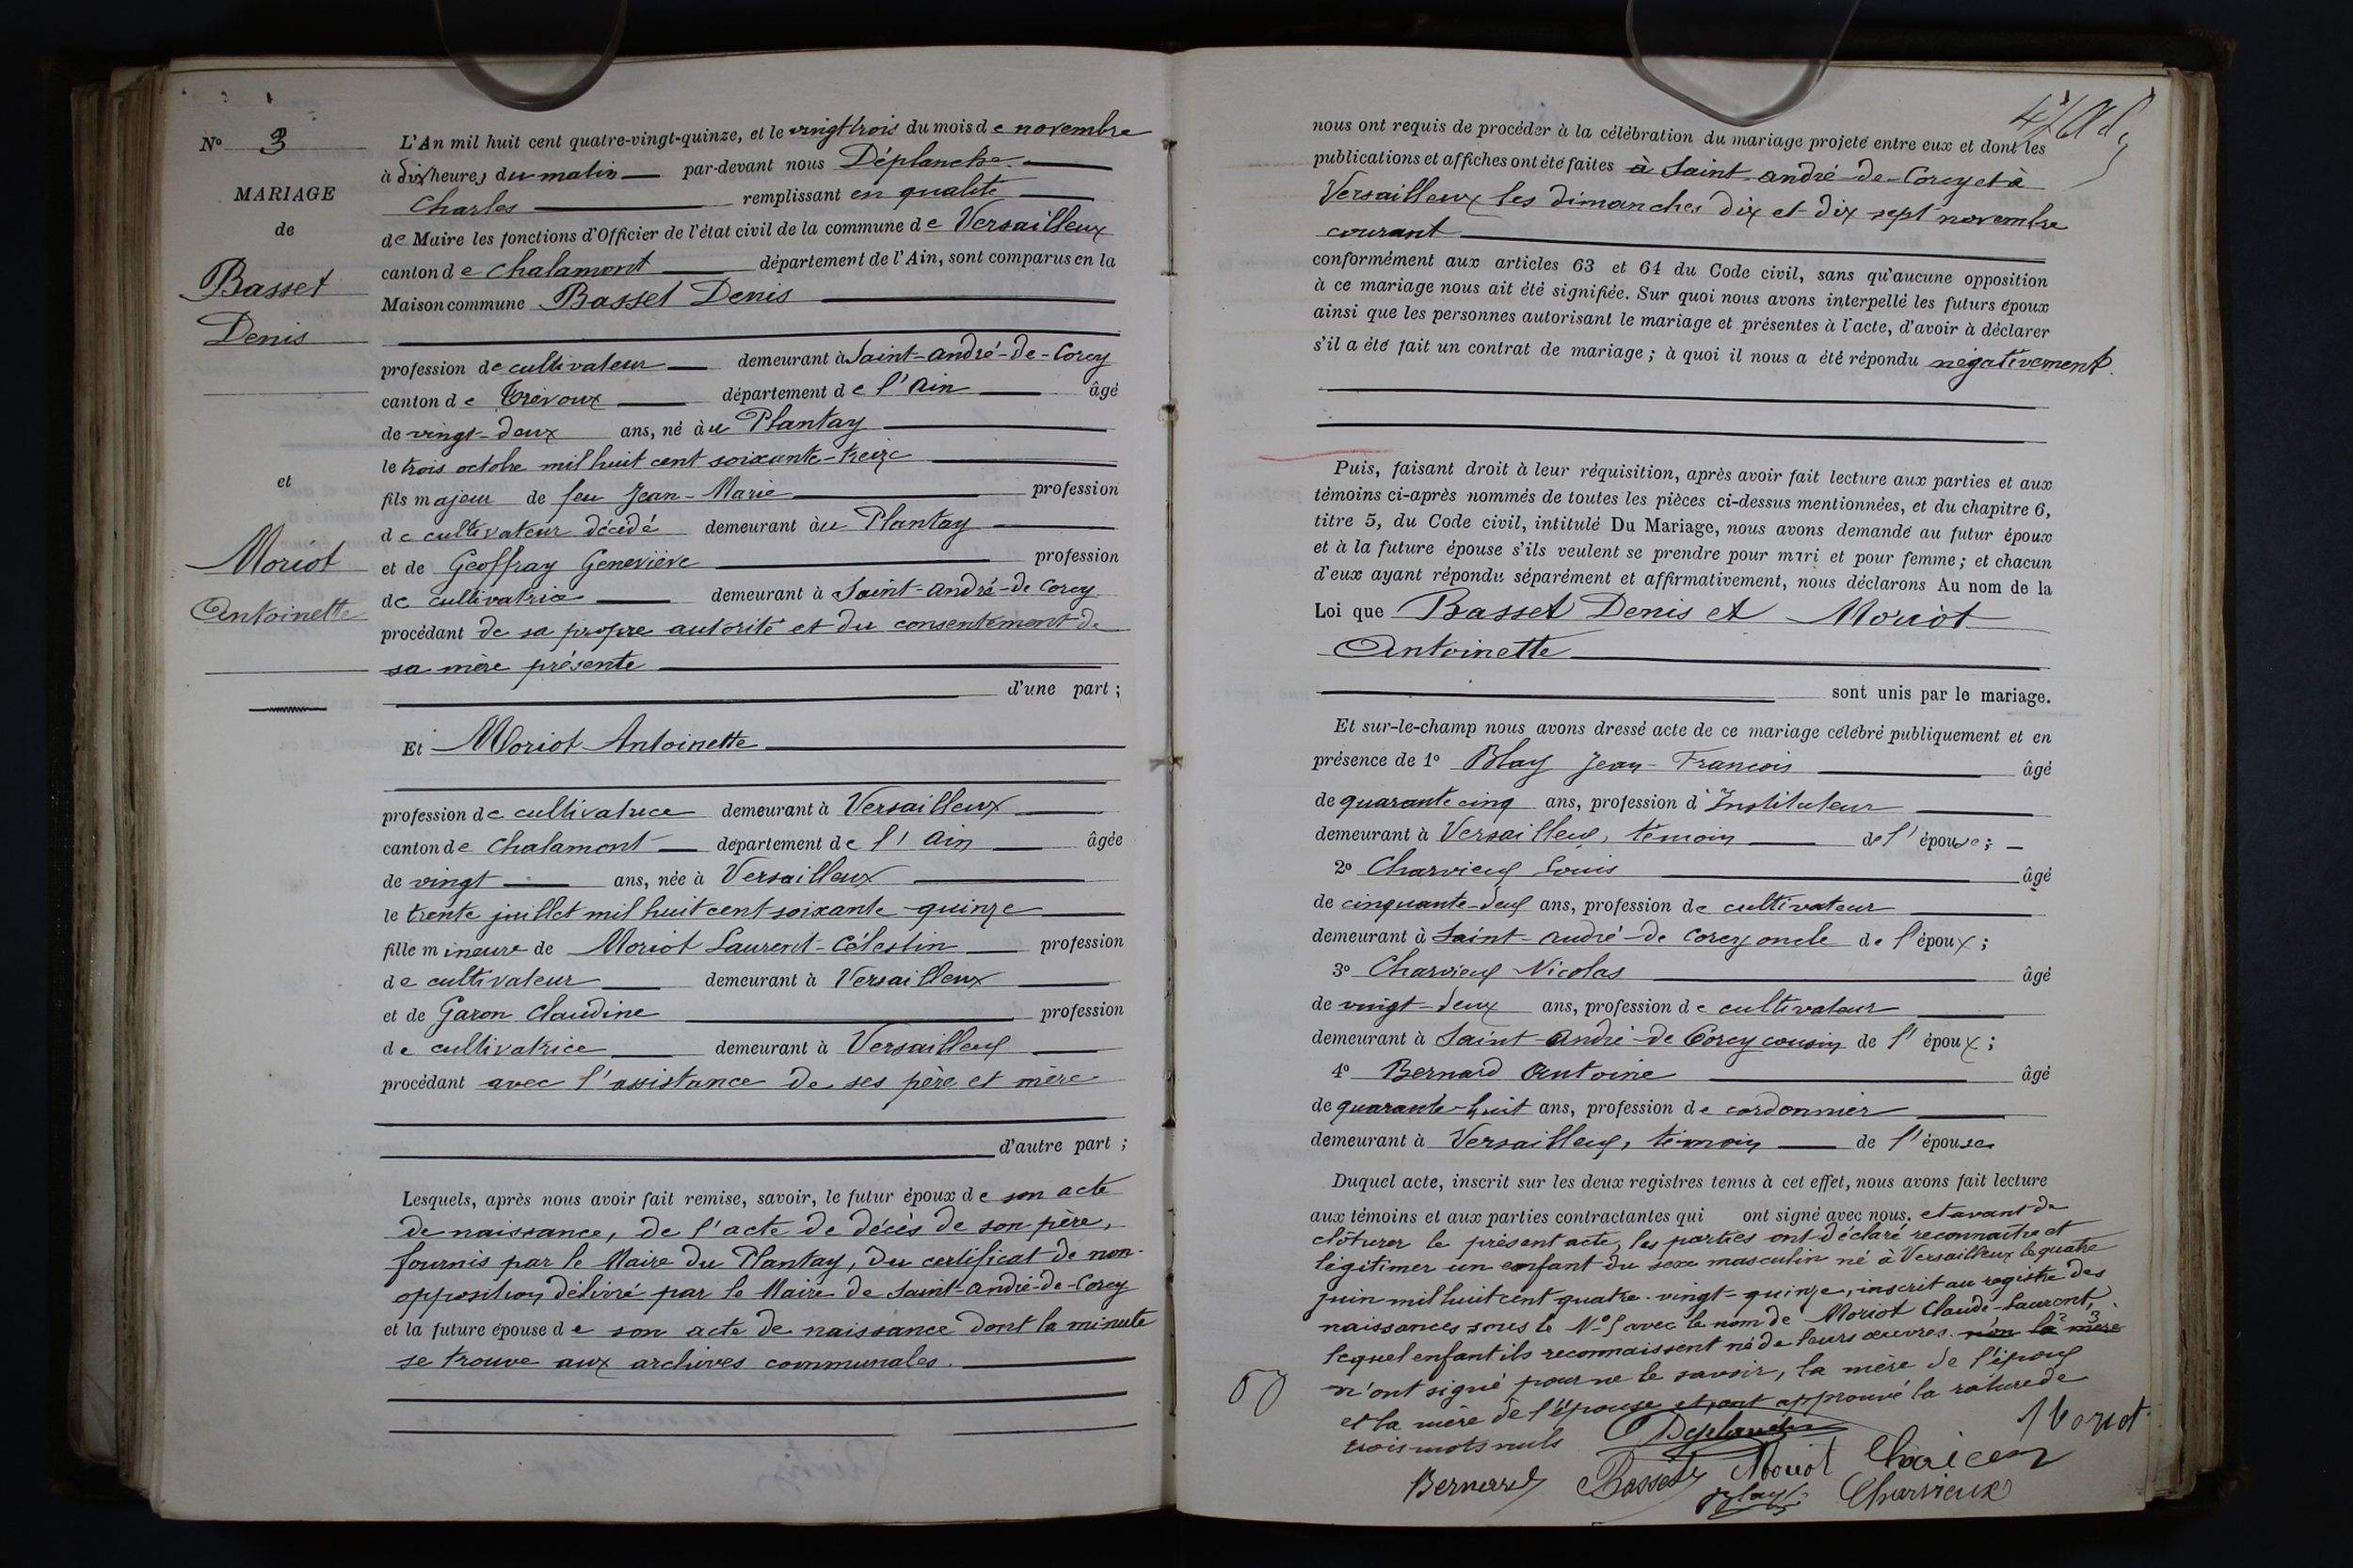 N° 3
MARIAGE
de
Basset
Denis
et
Moriot
Antoinette
L'An mil huit cent quatre-vingt-quinze, et le vingt trois du mois de novembre
à dix heures du matin par-devant nous Déplanche
Charles remplissant en qualité
de Maire les fonctions d'Officier de l'état civil de la commune de Versailleux
canton de Chalamont département de l'Ain, sont comparus en la
Maison commune Basset Denis
profession de cultivateur demeurant à Saint-andré-de-Corcy
canton de Trévoux département de l'Ain âgé
de vingt-deux ans, né àu Plantay
le trois octobre mil huit cent soixante-treize
fils majeur de feu Jean-Marie profession
de cultivateur décédé demeurant àu Plantay
et de Geoffray Geneviève profession
de cultivatrice demeurant à Saint-andré-de Corcy
procédant de sa propre autorité et du consentement de
sa mère présente
d'une part ;
Et Moriot Antoinette
profession de cultivatrice demeurant à Versailleux
canton de Chalamont département de l'Ain âgée
de vingt ans, née à Versailleux
le trente juillet mil huit cent soixante-quinze
fille mineure de Moriot Laurent-Célestin profession
de cultivateur demeurant à Versailleux
et de Garon Claudine profession
de cultivatrice demeurant à Versailleux
procédant avec l'assistance de ses père et mère
d'autre part ;
Lesquels, après nous avoir fait remise, savoir, le futur époux de son acte
de naissance, de l'acte de décès de son père,
fournis par le Maire du Plantay, du certificat de non-
opposition délivré par le Maire de Saint-andré-de-Corcy
et la future épouse de son acte de naissance dont la minute
se trouve aux archives communales.
nous ont requis de procéder à la célébration du mariage projeté entre eux et dont les
publications et affiches ont été faites à Saint-andré-de-Corcy et à
Versailleux les dimanches dix et dix-sept novembre
courant
conformément aux articles 63 et 64 du Code civil, sans qu'aucune opposition
à ce mariage nous ait été signifiée. Sur quoi nous avons interpellé les futurs époux
ainsi que les personnes autorisant le mariage et présentes à l'acte, d'avoir à déclarer
s'il a été fait un contrat de mariage ; à quoi il nous a été répondu négativement.
Puis, faisant droit à leur réquisition, après avoir fait lecture aux parties et aux
témoins ci-après nommés de toutes les pièces ci-dessus mentionnées, et du chapitre 6,
titre 5, du Code civil, intitulé Du Mariage, nous avons demandé au futur époux
et à la future épouse s'ils veulent se prendre pour mari et pour femme ; et chacun
d'eux ayant répondu séparément et affirmativement, nous déclarons Au nom de la
Loi que Basset Denis et Moriot
Antoinette
sont unis par le mariage.
Et sur-le-champ nous avons dressé acte de ce mariage célébré publiquement et en
présence de 1° Blay Jean-François âgé
de quarante cinq ans, profession d'Instituteur
demeurant à Versailleux, témoin de l'épouse ;
2° Charvieux Louis âgé
de cinquante-deux ans, profession de cultivateur
demeurant à Saint-andré-de Corcy oncle de l'époux ;
3° Charvieux Nicolas âgé
de vingt-deux ans, profession de cultivateur
demeurant à Saint-André-de Corcy cousin de l'époux ;
4° Bernard Antoine âgé
de quarante-huit ans, profession de cordonnier
demeurant à Versailleux, témoin de l'épouse
Duquel acte, inscrit sur les deux registres tenus à cet effet, nous avons fait lecture
aux témoins et aux parties contractantes qui ont signé avec nous. et avant de
clôturer le présent acte, les parties ont déclaré reconnaître et
légitimer un enfant du sexe masculin né à Versailleux le quatre
juin mil huit cent quatre-vingt-quinze, inscrit au registre des
naissances sous le N° 5 avec le nom de Moriot Claude-Laurent,
lequel enfant ils reconnaissent né de leurs œuvres. non la mère
n'ont signé pour ne le savoir, la mère de l'époux
et la mère de l'épouse et ont approuvé la rature de
trois mots nuls
Deplanche
Moriot
Bernard Basset Moriot
Blay Charvieux